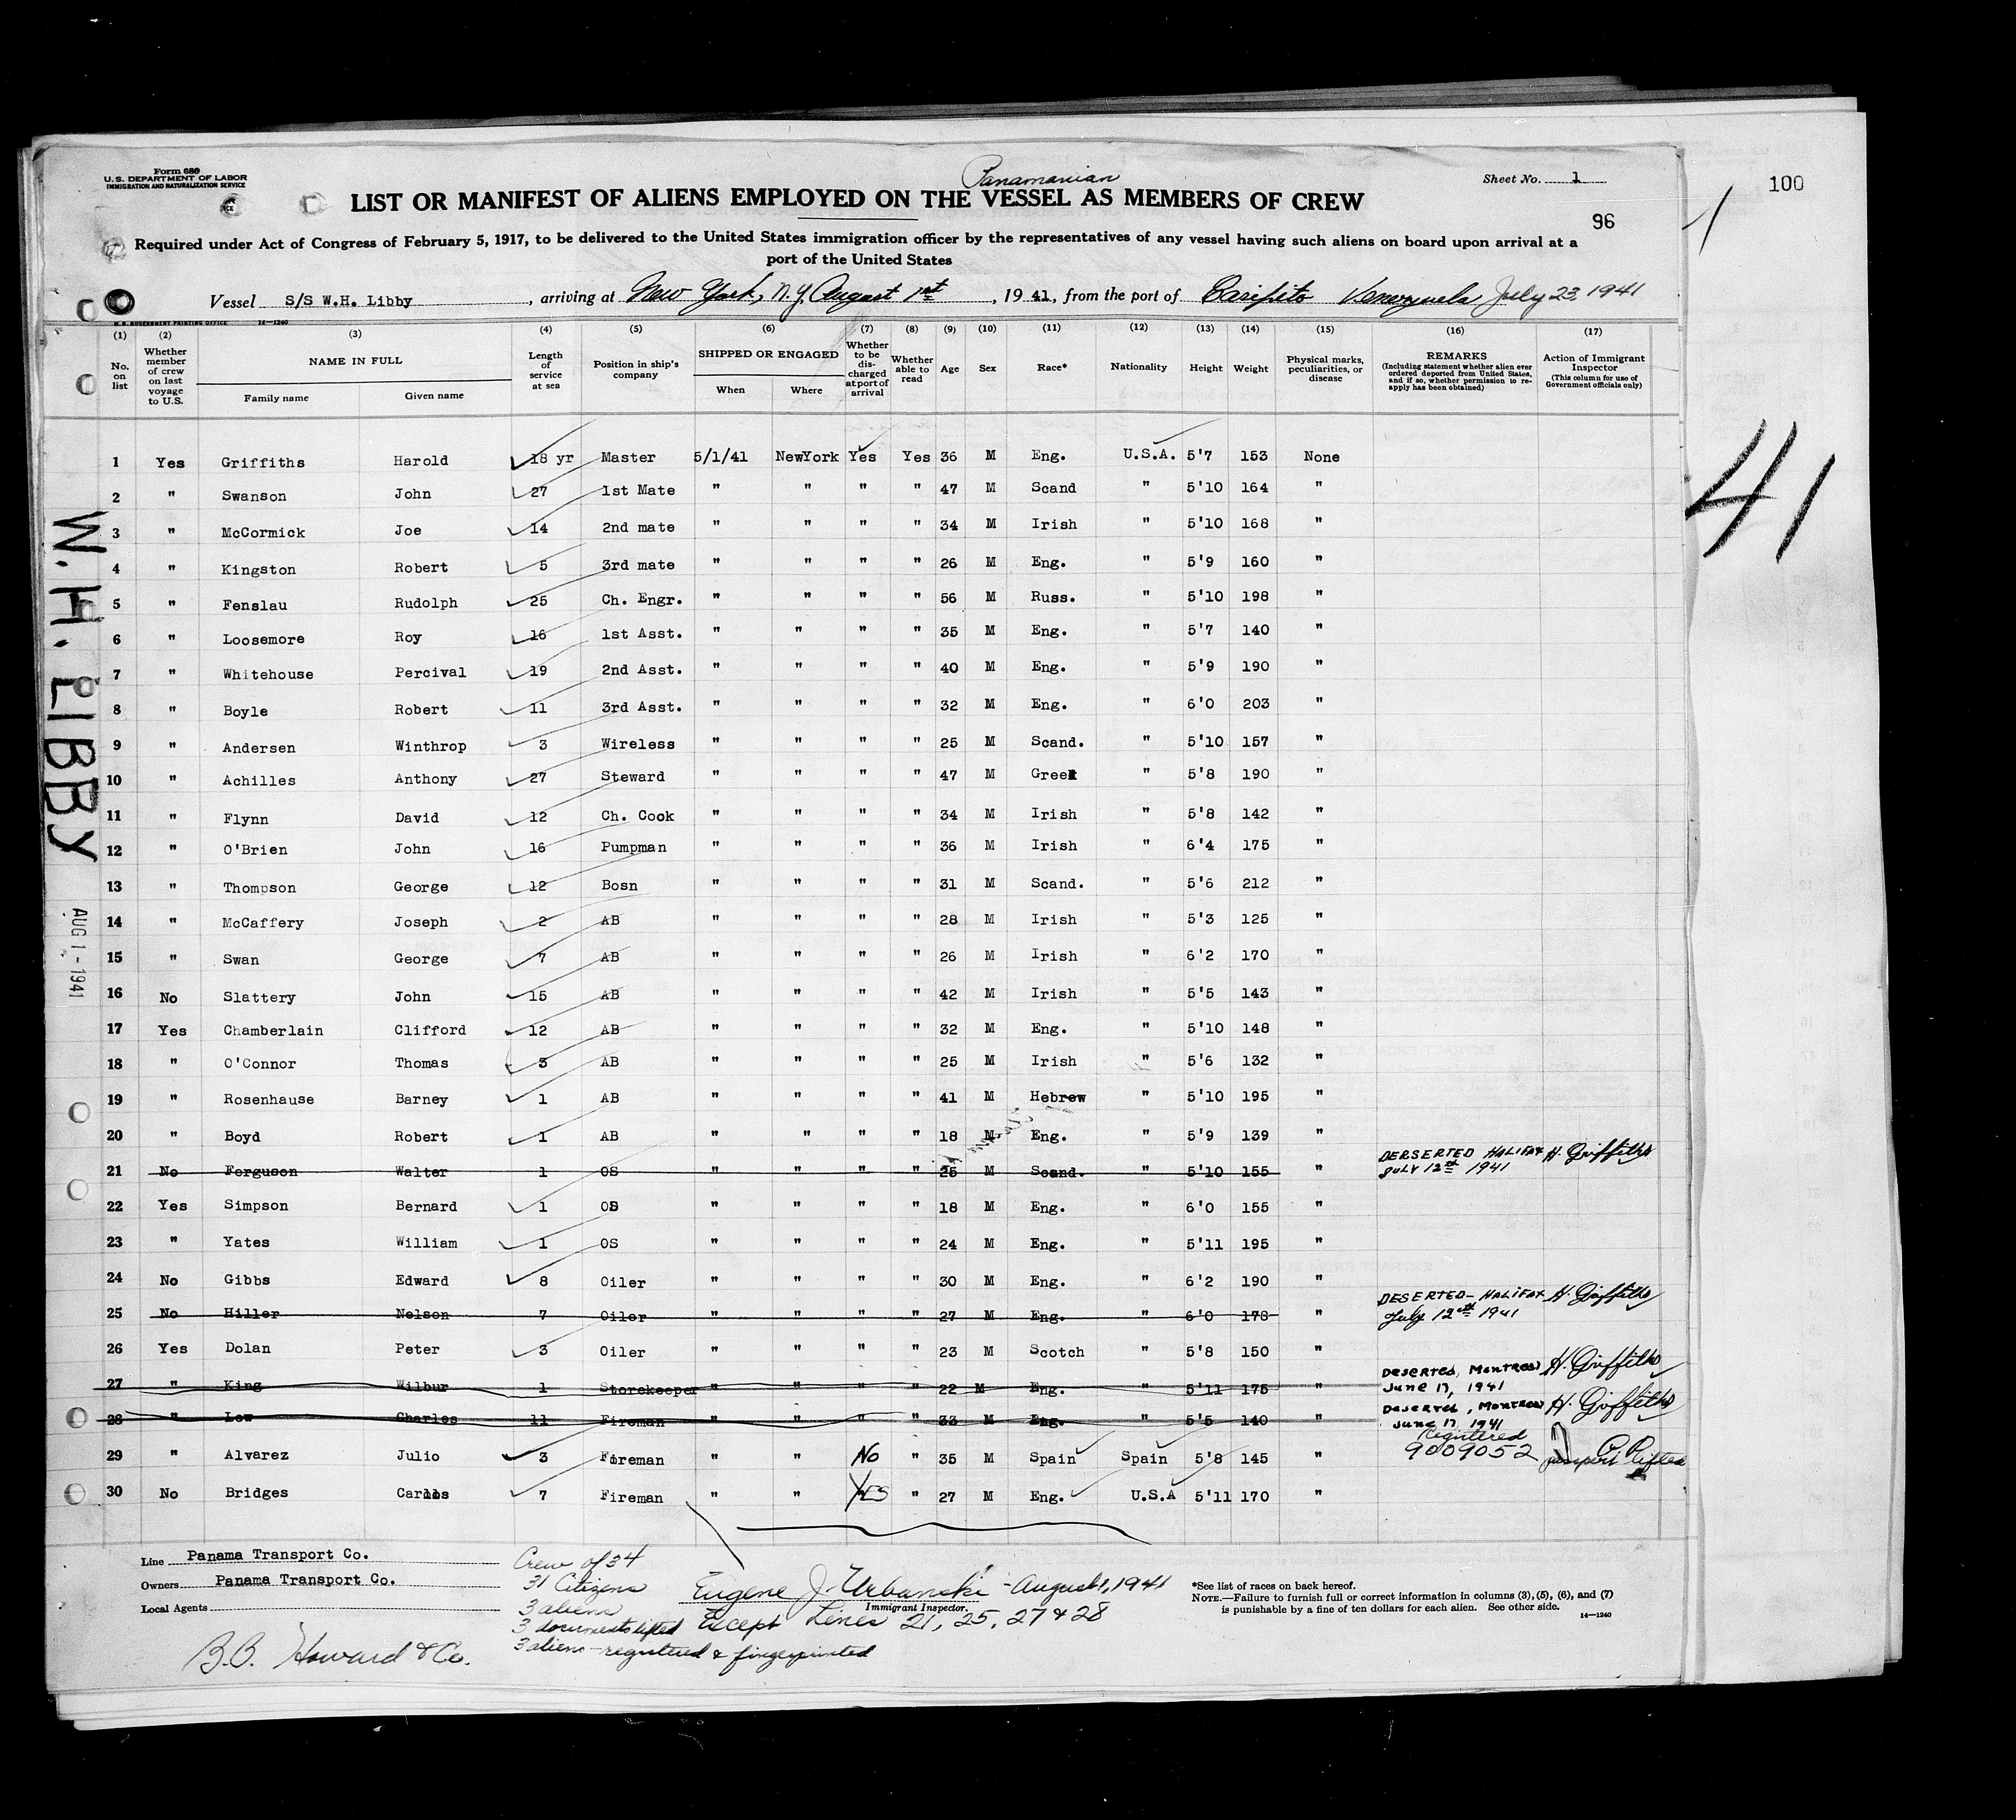 Form 680
U.S. DEPARTMENT OF LABOR
IMMIGRATION AND NATURALIZATION SERVICE
Sheet No. 1
100
Panamanian
LIST OR MANIFEST OF ALIENS EMPLOYED ON THE VESSEL AS MEMBERS OF CREW
96
1
Required under Act of Congress of February 5, 1917, to be delivered to the United States immigration officer by the representatives of any vessel having such aliens on board upon arrival at a
port of the United States
Vessel S/S W.H. Libby, arriving at New York, N.Y. August 1st, 1941, from the port of Caripito Venezuela July 23, 1941
U.S. GOVERNMENT PRINTING OFFICE 14—1240
(1) (2) (3) (4) (5) (6) (7) (8) (9) (10) (11) (12) (13) (14) (15) (16) (17)
No. on list
Whether member of crew on last voyage to U.S.
NAME IN FULL
Family name
Given name
Length of service at sea
Position in ship's company
SHIPPED OR ENGAGED
When
Where
Whether to be discharged at port of arrival
Whether able to read
Age
Sex
Race*
Nationality
Height
Weight
Physical marks, peculiarities, or disease
REMARKS
(Including statement whether alien ever ordered deported from United States, and if so, whether permission to reapply has been obtained)
Action of Immigrant Inspector
(This column for use of Government officials only)
1 Yes Griffiths Harold 18 yr Master 5/1/41 NewYork Yes Yes 36 M Eng. U.S.A. 5'7 153 None
2 " Swanson John 27 1st Mate " " " " 47 M Scand " 5'10 164 "
3 " McCormick Joe 14 2nd mate " " " " 34 M Irish " 5'10 168 "
4 " Kingston Robert 5 3rd mate " " " " 26 M Eng. " 5'9 160 "
5 " Fenslau Rudolph 25 Ch. Engr. " " " " 56 M Russ. " 5'10 198 "
6 " Loosemore Roy 16 1st Asst. " " " " 35 M Eng. " 5'7 140 "
7 " Whitehouse Percival 19 2nd Asst. " " " " 40 M Eng. " 5'9 190 "
8 " Boyle Robert 11 3rd Asst. " " " " 32 M Eng. " 6'0 203 "
9 " Andersen Winthrop 3 Wireless " " " " 25 M Scand. " 5'10 157 "
10 " Achilles Anthony 27 Steward " " " " 47 M Greek " 5'8 190 "
11 " Flynn David 12 Ch. Cook " " " " 34 M Irish " 5'8 142 "
12 " O'Brien John 16 Pumpman " " " " 36 M Irish " 6'4 175 "
13 " Thompson George 12 Bosn " " " " 31 M Scand. " 5'6 212 "
14 " McCaffery Joseph 2 AB " " " " 28 M Irish " 5'3 125 "
15 " Swan George 7 AB " " " " 26 M Irish " 6'2 170 "
16 No Slattery John 15 AB " " " " 42 M Irish " 5'5 143 "
17 Yes Chamberlain Clifford 12 AB " " " " 32 M Eng. " 5'10 148 "
18 " O'Connor Thomas 3 AB " " " " 25 M Irish " 5'6 132 "
19 " Rosenhause Barney 1 AB " " " " 41 M Hebrew " 5'10 195 "
20 " Boyd Robert 1 AB " " " " 18 M Eng. " 5'9 139 "
21 No Ferguson Walter 1 OS " " " " 25 M Scand. " 5'10 155 " DERSERTED HALIFAX JULY 12th 1941 H. Griffiths
22 Yes Simpson Bernard 1 OS " " " " 18 M Eng. " 6'0 155 "
23 " Yates William 1 OS " " " " 24 M Eng. " 5'11 195 "
24 No Gibbs Edward 8 Oiler " " " " 30 M Eng. " 6'2 190 "
25 No Hiller Nelson 7 Oiler " " " " 27 M Eng. " 6'0 178 " DESERTED- HALIFAX July 12th 1941 H. Griffiths
26 Yes Dolan Peter 3 Oiler " " " " 23 M Scotch " 5'8 150 "
27 " King Wilbur 1 Storekeeper " " " " 22 M Eng. " 5'11 175 " Deserted, Montreal June 17, 1941 H. Griffiths
28 " Low Charles 11 Fireman " " " " 33 M Eng. " 5'5 140 " Deserted, Montreal June 17, 1941 H. Griffiths
29 " Alvarez Julio 3 Fireman " " No " 35 M Spain Spain 5'8 145 " Registered 9009052 passport lifted
30 No Bridges Carlos 7 Fireman " " YES " 27 M Eng. U.S.A 5'11 170 "
W. H. LIBBY
AUG 1 - 1941
41
Line Panama Transport Co.
Owners Panama Transport Co.
Local Agents
B.B. Howard & Co.
Crew of 34
31 Citizens
3 aliens
3 documents lifted
3 aliens - registered & fingerprinted
Eugene J. Urbanski - August 1, 1941
Immigrant Inspector.
Except Lines 21, 25, 27 & 28
*See list of races on back hereof.
NOTE.—Failure to furnish full or correct information in columns (3), (5), (6), and (7)
is punishable by a fine of ten dollars for each alien. See other side.
14—1240